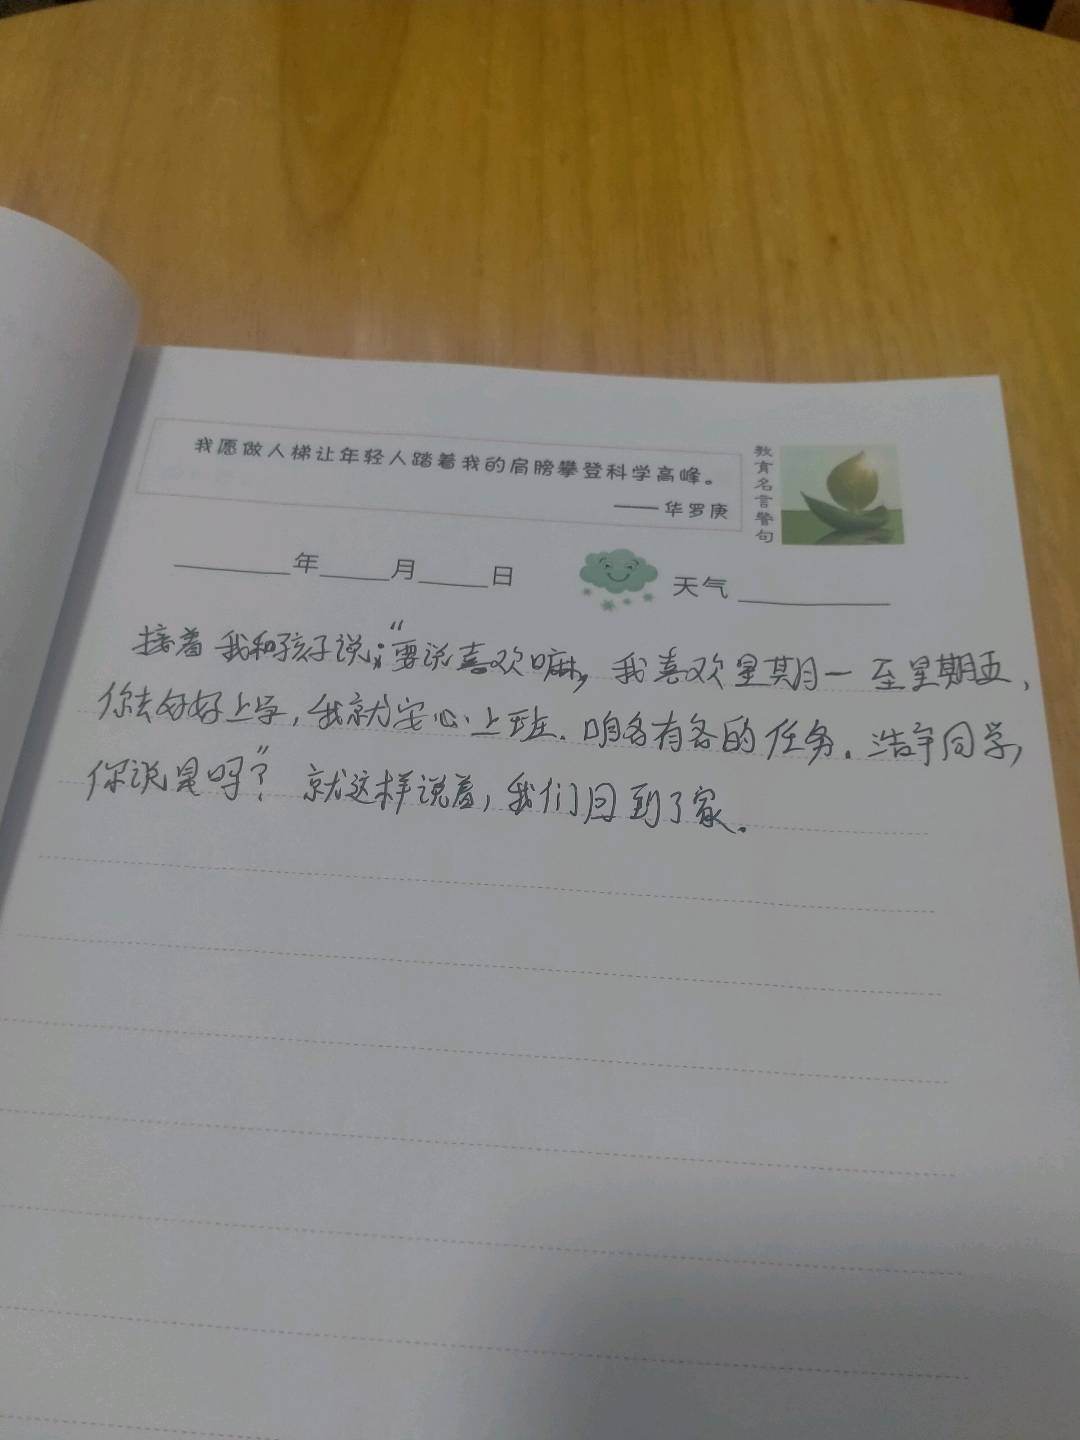 我愿做人梯让年轻人踏着我的肩膀攀登科学高峰。
——华罗庚
教育名言警句
____年____月____日 天气____
接着我和孩子说:“要说喜欢嘛,我喜欢星期一至星期五,
你去好好上学,我就安心上班.咱各有各的任务.浩宇同学,
你说是吗?”就这样说着,我们回到了家.